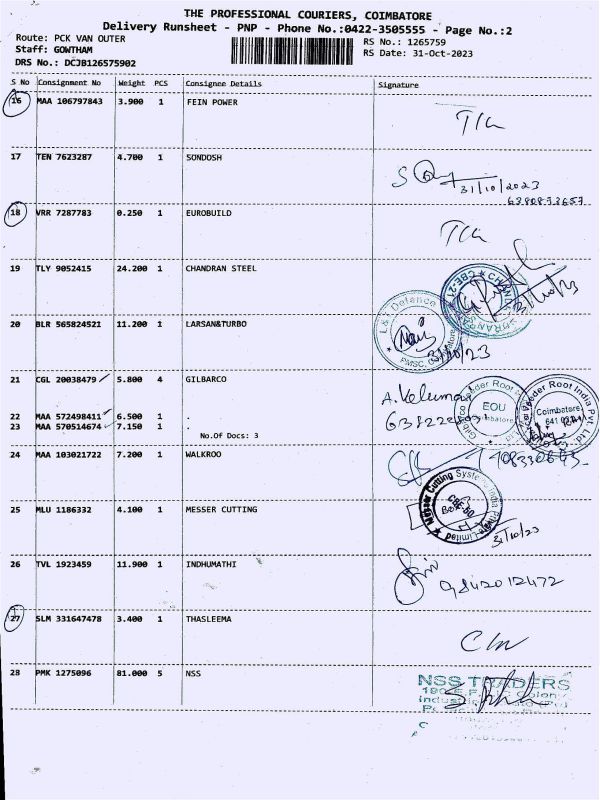 THE PROFESSIONAL COURIERS, COIMBATORE
Delivery Runsheet - PNP - Phone No.:0422-3505555 - Page No.:2
Route: PCK VAN OUTER
RS No.: 1265759
Staff: GOWTHAM
RS Date: 31-Oct-2023
DRS No.: DCJB126575902
S No Consignment No Weight PCS Consignee Details Signature
16 MAA 106797843 3.900 1 FEIN POWER
17 TEN 7623287 4.700 1 SONDOSH
31/10/2023
18 VRR 7287783 0.250 1 EUROBUILD
19 TLY 9052415 24.200 1 CHANDRAN STEEL
31/10/23
20 BLR 565824521 11.200 1 LARSAN&TURBO
L&T Defence
31/10/23
21 CGL 20038479 5.800 4 GILBARCO
EOU
Coimbatore
22 MAA 572498411 6.500 1 .
23 MAA 570514674 7.150 1 .
No.Of Docs: 3
24 MAA 103021722 7.200 1 WALKROO
25 MLU 1186332 4.100 1 MESSER CUTTING
Messer Cutting Systems India Private Limited
31/10/23
26 TVL 1923459 11.900 1 INDHUMATHI
9842012472
27 SLM 331647478 3.400 1 THASLEEMA
28 PMK 1275096 81.000 5 NSS
NSS TRADERS